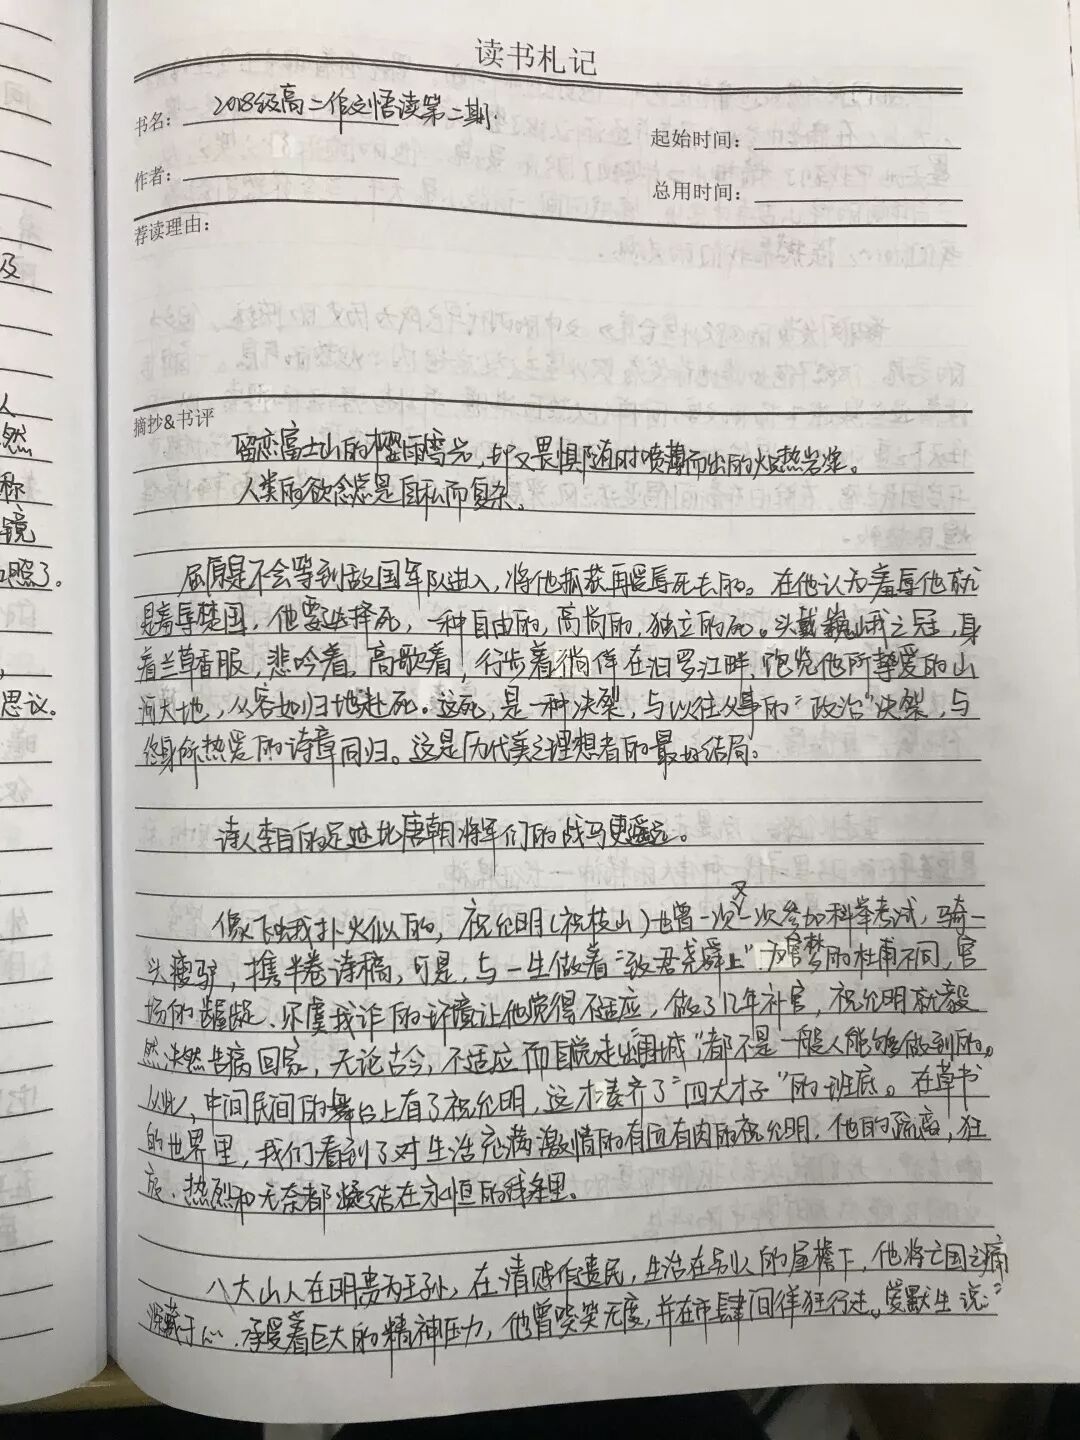 读书札记
书名: 2018级高二作文悟读第二期.
起始时间:
作者:
总用时间:
荐读理由:
摘抄&书评
留恋富士山的樱雨雪光,却又畏惧随时喷薄而出的火热岩浆。
人类的欲念总是自私而复杂。
屈原是不会等到敌国军队进入,将他抓获再受辱死去的。在他认为羞辱他就
是羞辱楚国,他要选择死,一种自由的,高尚的,独立的死。头戴巍峨之冠,身
着兰草香服,悲吟着,高歌着,行步着徜徉在汨罗江畔,饱览他所挚爱的山
河大地,从容如归地赴死。这死,是一种决裂,与以往从事的“政治”决裂,与
终身所热爱的诗章同归。这是历代美之理想者的最好结局.
诗人李白的足迹比唐朝将军们的战马更遥远。
像飞蛾扑火似的,祝允明(祝枝山)也曾一次又一次参加科举考试,骑一
头瘦驴,携半卷诗稿,可是,与一生做着“致君尧舜上”官梦的杜甫不同,官
场的龌龊、尔虞我诈的环境让他觉得不适应,做了几年补官,祝允明就毅
然决然告病回家,无论古今,不适应而自觉走出“围城”,都不是一般人能够做到的。
从此,中间民间的舞台上有了祝允明,这才凑齐了“四大才子”的班底。在草书
的世界里,我们看到了对生活充满激情的有血有肉的祝允明,他的疏离,狂
放、热烈和无奈都凝结在永恒的线条里。
八大山人在明贵为王孙,在清贱作遗民,生活在别人的屋檐下,他将亡国之痛
深藏于心.承受着巨大的精神压力,他曾哭笑无度,并在市肆间佯狂行走。爱默生说:“
及
人
然
称
镜
照了。
思议。